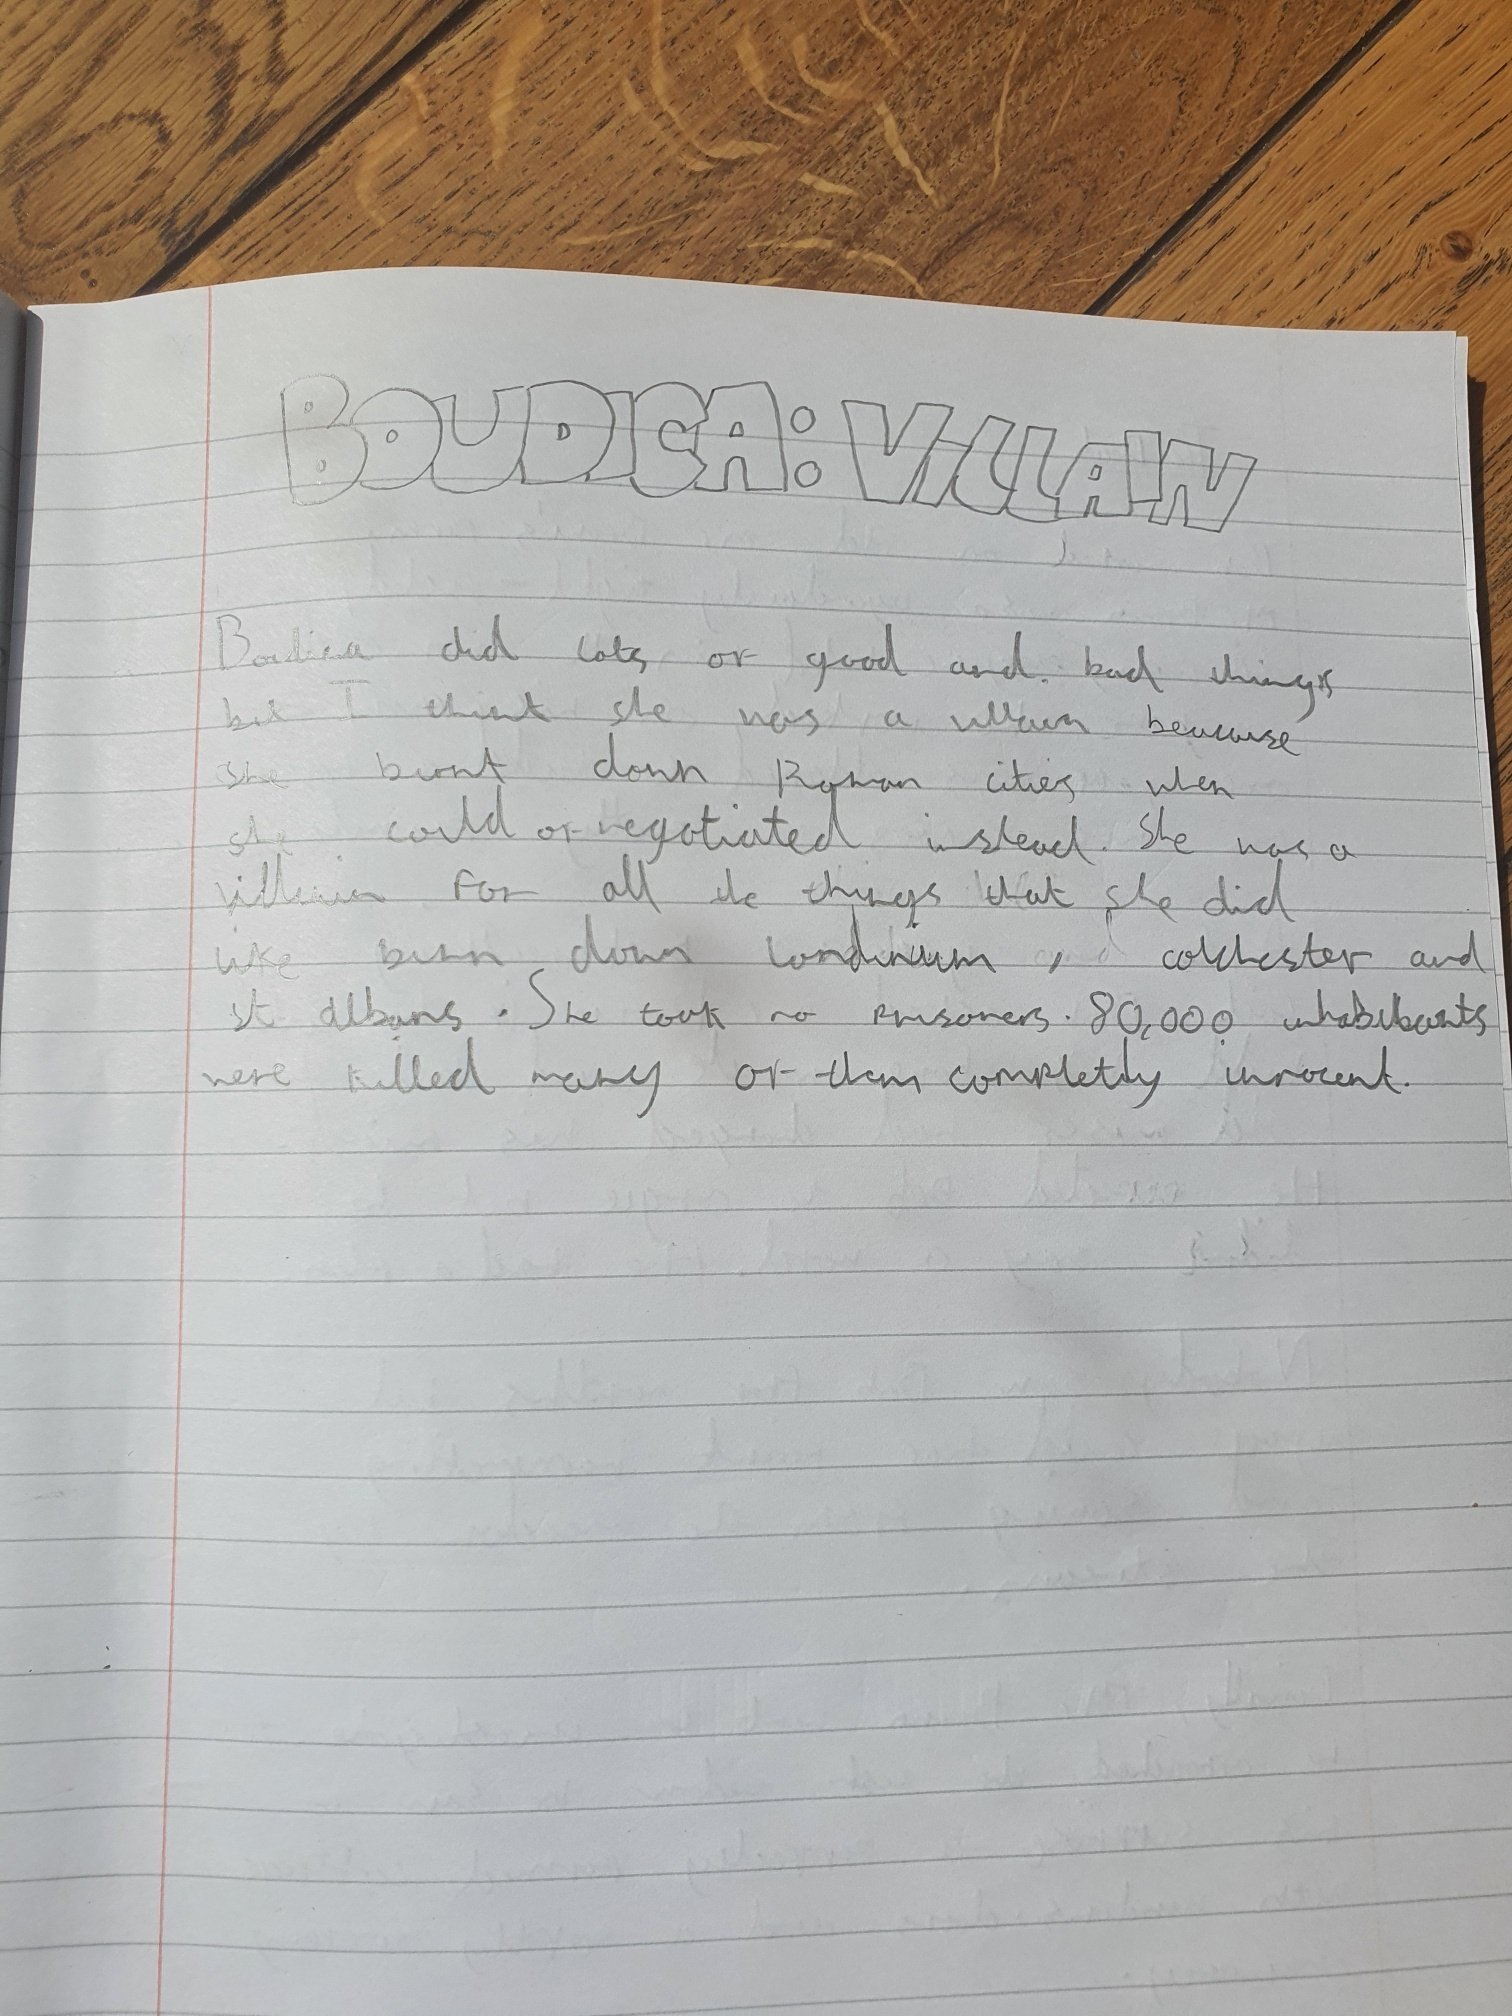 BOUDICA: VILLAIN
Boudica did lots of good and bad things
but I think she was a villain beacause
she burnt down Roman cities when
she could of negotiated instead. She was a
villain for all the things that she did
like burn down londinium, colchester and
st albans. She took no prisoners. 80,000 inhabitants
were killed many of them completly innocent.